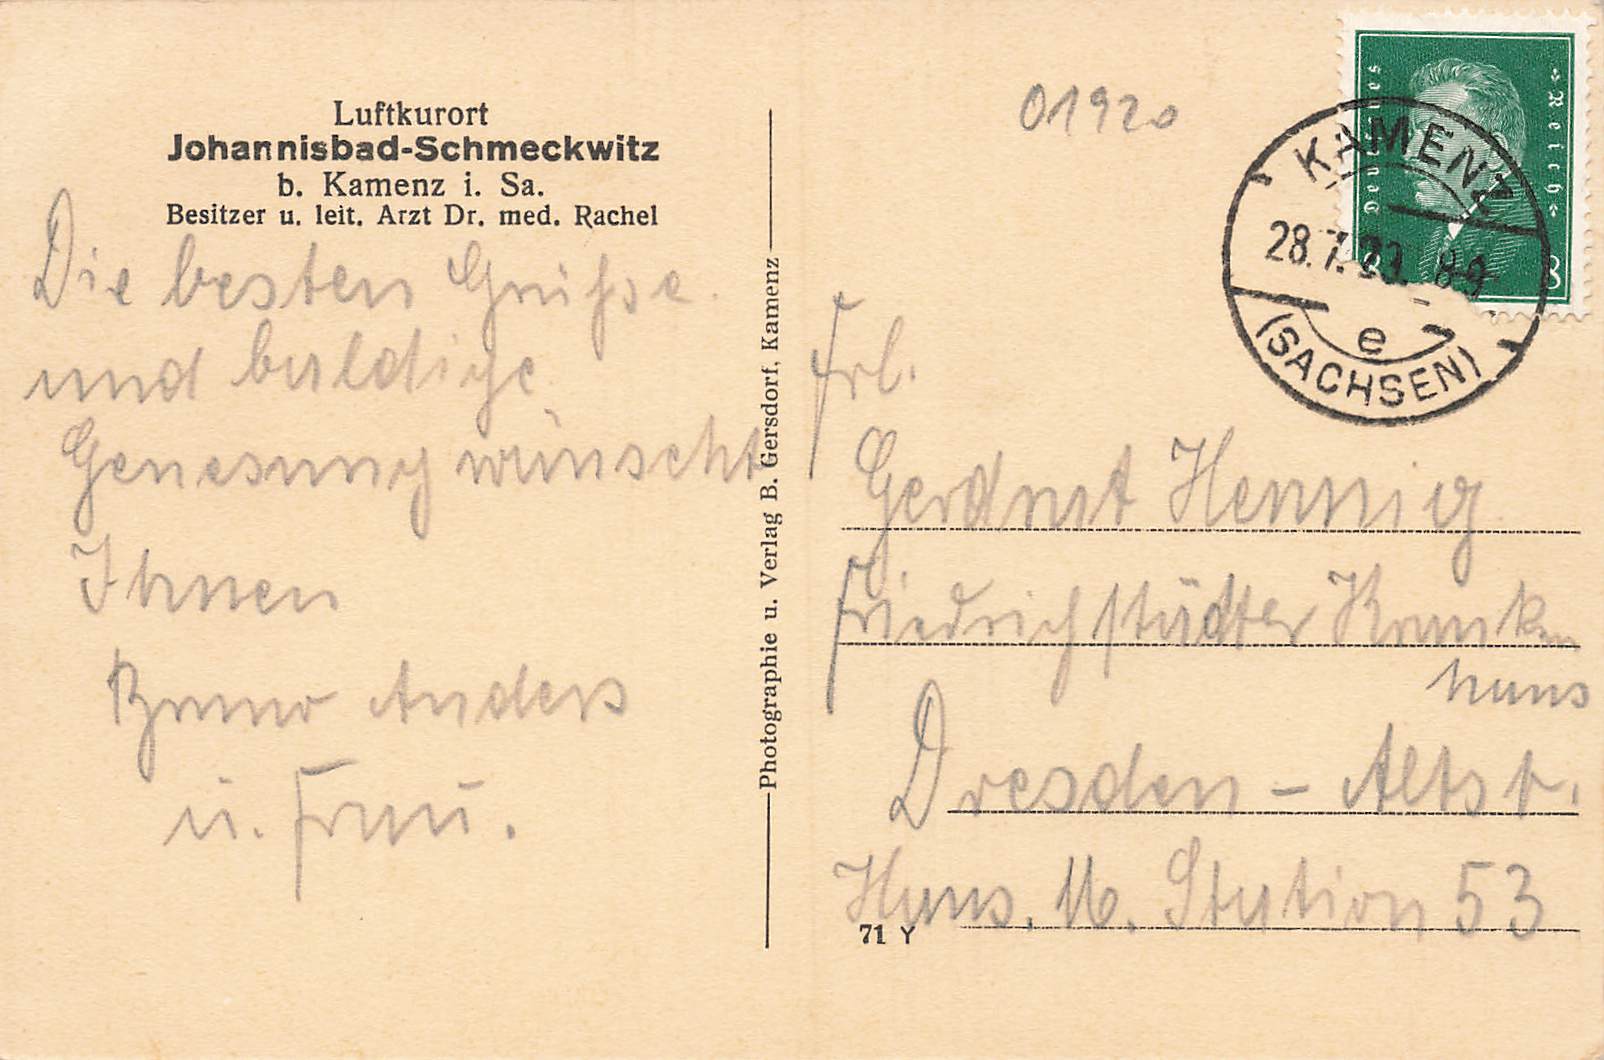 Luftkurort
Johannisbad-Schmeckwitz
b. Kamenz i. Sa.
Besitzer u. leit. Arzt Dr. med. Rachel
Die besten Grüße
und baldige
Genesung wünscht
Ihnen
Bruno Anders
u. Frau.
Photographie u. Verlag B. Gersdorf, Kamenz
01920
Deutsches
Reich
8
KAMENZ
28.7. 8-9
e
(SACHSEN)
Frl.
Gerdrut Hennig
Friedrichstädter Kranken
haus
Dresden - Altst.
Haus. M. Station 53
71 Y